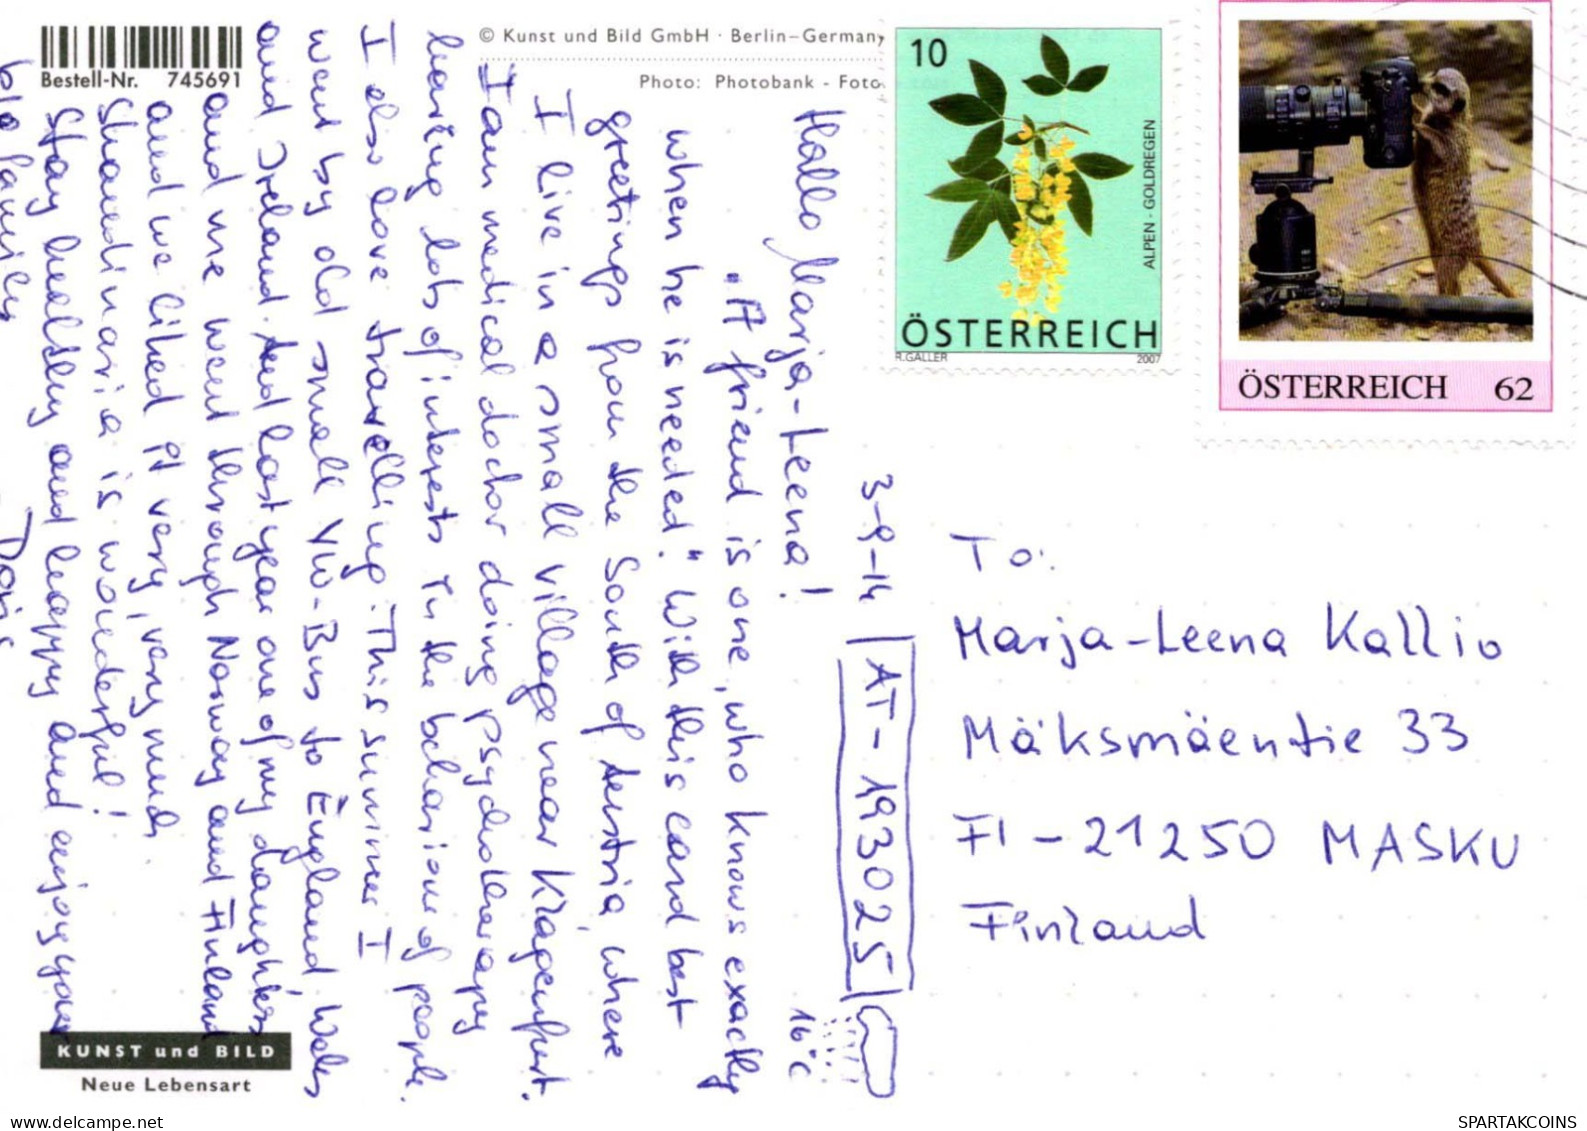 Bestell-Nr. 745691
© Kunst und Bild GmbH · Berlin–Germany
Photo: Photobank - Foto
10
ALPEN - GOLDREGEN
ÖSTERREICH
R.GALLER 2007
ÖSTERREICH 62
3-9-14
AT-193025
16°C
Hallo Marja-Leena!
"A friend is one, who knows exactly
when he is needed." With this card best
greetings from the South of Austria, where
I live in a small village near Klagenfurt.
I am medical doctor doing psychotherapy
having lots of interests in the behaviour of people.
I also love travelling. This summer I
went by old small VW-Bus to England, Wales
and Ireland. And last year one of my daughters
and me went through Norway and Finland
and we liked it very, very much.
Skandinavia is wonderful!
Stay healthy and happy and enjoy your
family
Doris
To:
Marja-Leena Kallio
Mäksmäentie 33
FI-21250 MASKU
Finland
KUNST und BILD
Neue Lebensart
www.delcampe.net
SPARTAKCOINS